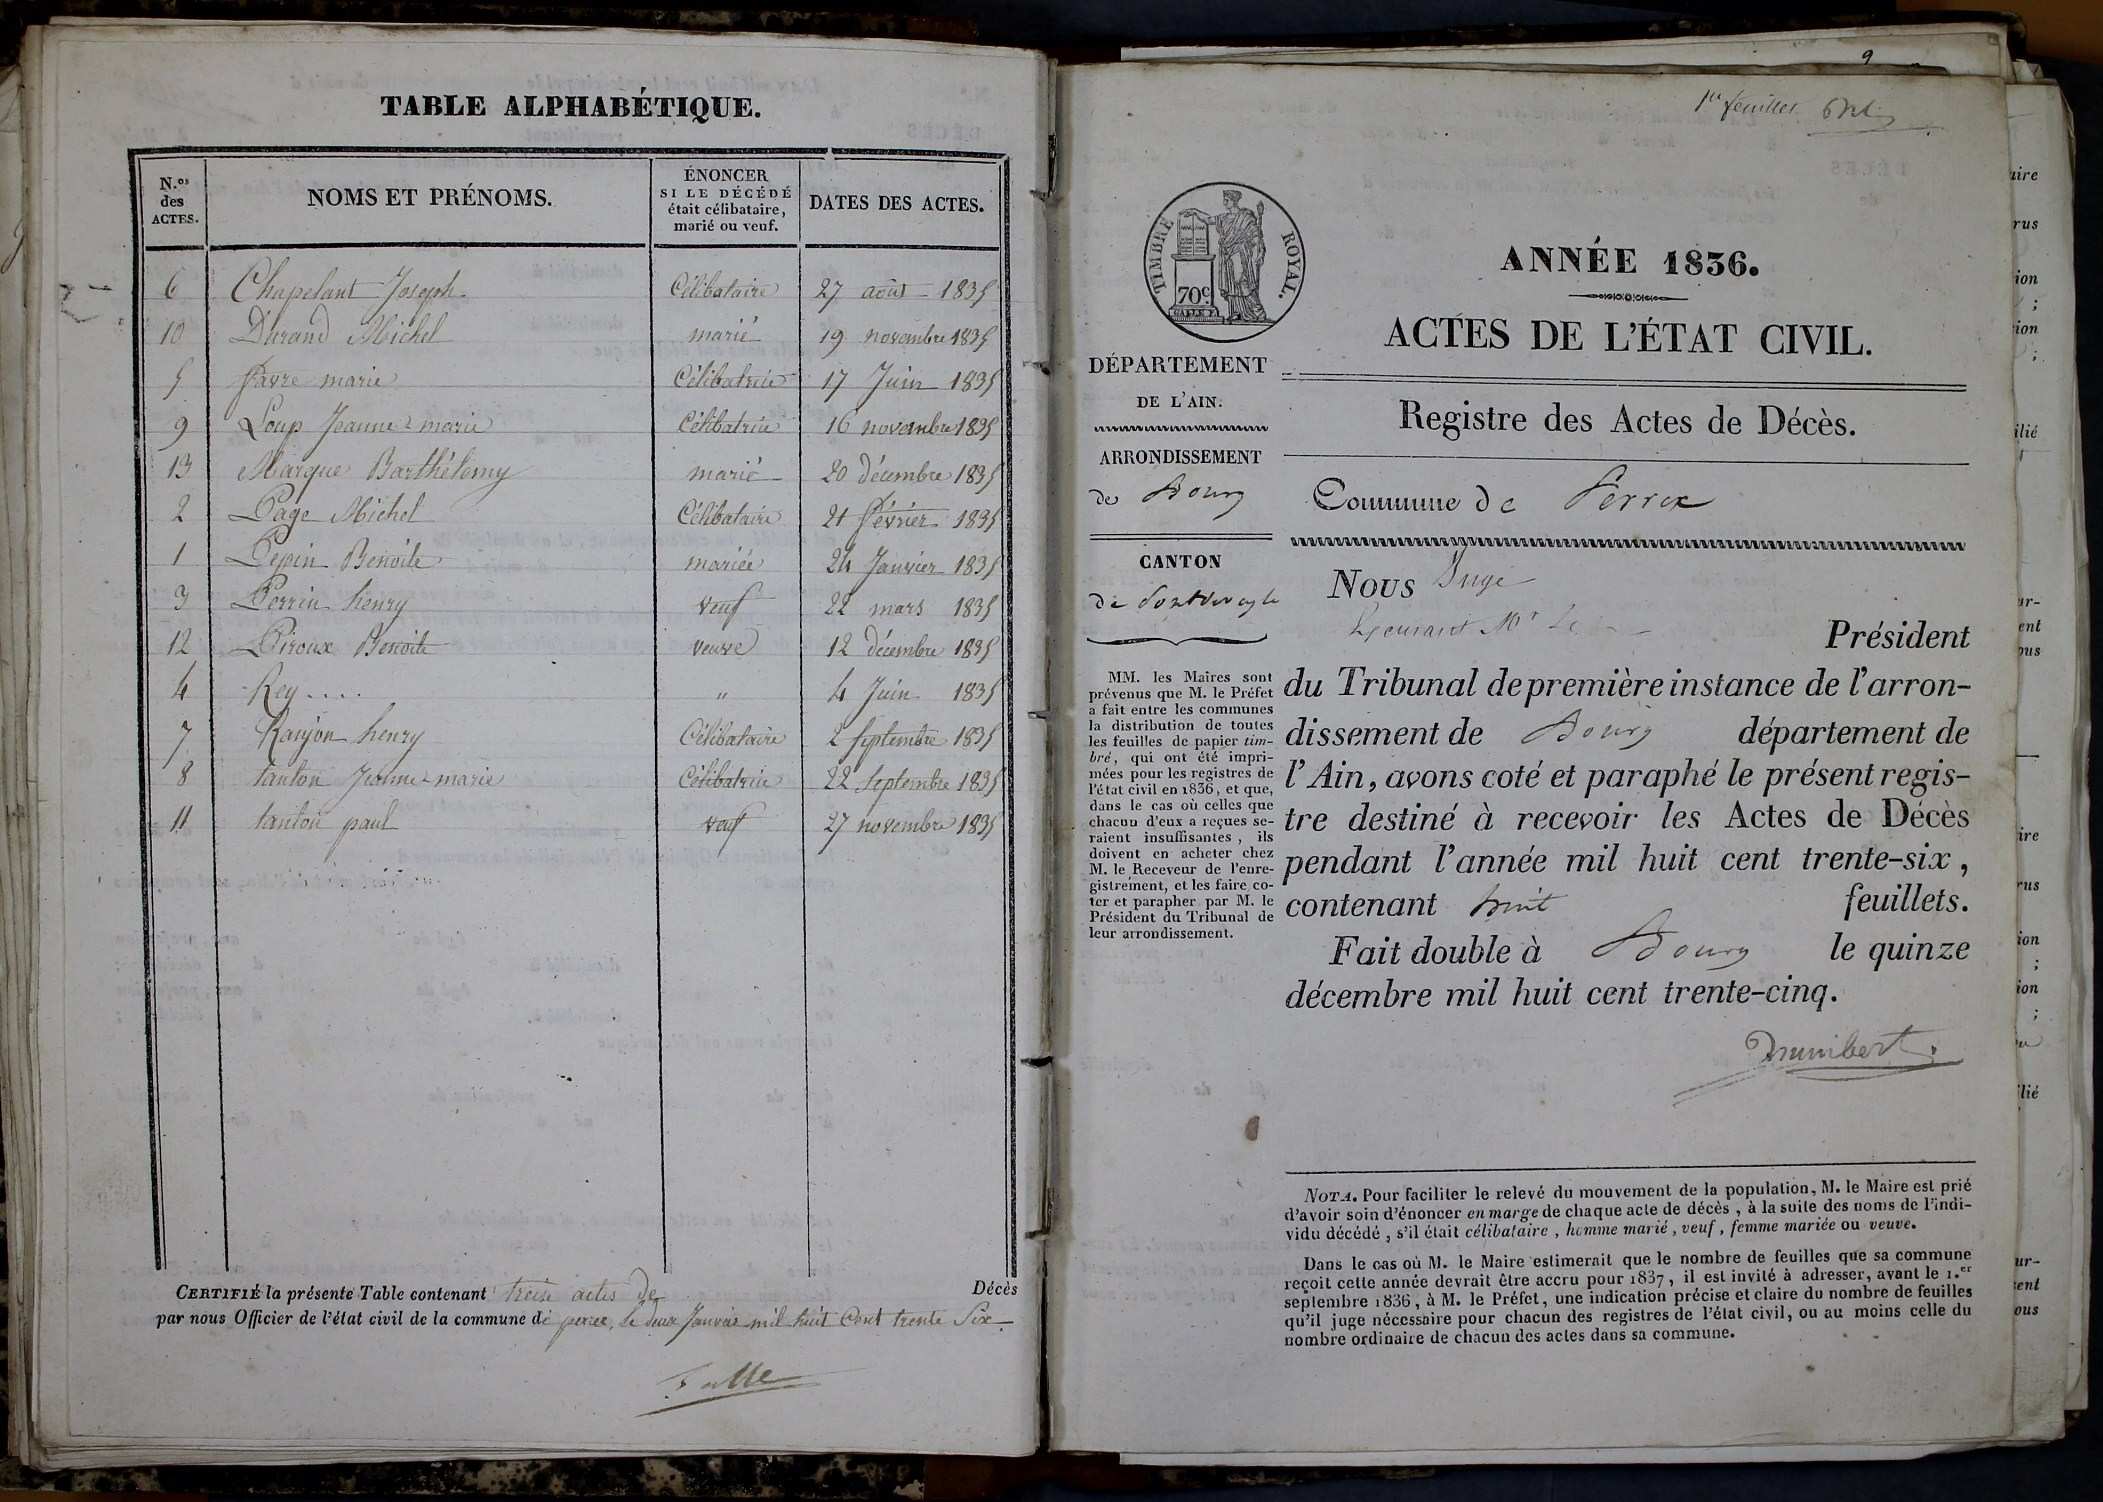 TABLE ALPHABÉTIQUE.
N.os des ACTES.
NOMS ET PRÉNOMS.
ÉNONCER SI LE DÉCÉDÉ était célibataire, marié ou veuf.
DATES DES ACTES.
6 Chapelant Joseph Célibataire 27 août 1835
10 Durand Michel marié 19 novembre 1835
5 favre marie Célibatrice 17 Juin 1835
9 Loup Jeanne-marie Célibatrice 16 novembre 1835
13 Marque Barthélemy marié 20 Décembre 1835
2 Page Michel Célibataire 21 février 1835
1 Pepin Benoite mariée 24 Janvier 1835
3 Perrin henry veuf 22 mars 1835
12 Piroux Benoite veuve 12 Décembre 1835
4 Rey .... " 4 Juin 1835
7 Ranjon henry Célibataire 2 Septembre 1835
8 tanton Jeanne-marie Célibatrice 22 Septembre 1835
11 tanton paul veuf 27 novembre 1835
CERTIFIÉ la présente Table contenant treize actes de Décès
par nous Officier de l'état civil de la commune de perrex, le deux Janvier mil huit Cent trente Six
9
1er feuillet
TIMBRE ROYAL.
70c.
DÉPARTEMENT
DE L'AIN.
ARRONDISSEMENT
de Bourg
CANTON
de Pontdeveyle
MM. les Maires sont
prévenus que M. le Préfet
a fait entre les communes
la distribution de toutes
les feuilles de papier tim-
bré, qui ont été impri-
mées pour les registres de
l'état civil en 1836, et que,
dans le cas où celles que
chacun d'eux a reçues se-
raient insuffisantes, ils
doivent en acheter chez
M. le Receveur de l'enre-
gistrement, et les faire co-
ter et parapher par M. le
Président du Tribunal de
leur arrondissement.
ANNÉE 1836.
ACTES DE L'ÉTAT CIVIL.
Registre des Actes de Décès.
Commune de Perrex
Nous Juge
Président
du Tribunal de première instance de l'arron-
dissement de Bourg département de
l'Ain, avons coté et paraphé le présent regis-
tre destiné à recevoir les Actes de Décès
pendant l'année mil huit cent trente-six,
contenant huit feuillets.
Fait double à Bourg le quinze
décembre mil huit cent trente-cinq.
NOTA. Pour faciliter le relevé du mouvement de la population, M. le Maire est prié
d'avoir soin d'énoncer en marge de chaque acte de décès, à la suite des noms de l'indi-
vidu décédé, s'il était célibataire, homme marié, veuf, femme mariée ou veuve.
Dans le cas où M. le Maire estimerait que le nombre de feuilles que sa commune
reçoit cette année devrait être accru pour 1837, il est invité à adresser, avant le 1.er
septembre 1836, à M. le Préfet, une indication précise et claire du nombre de feuilles
qu'il juge nécessaire pour chacun des registres de l'état civil, ou au moins celle du
nombre ordinaire de chacun des actes dans sa commune.